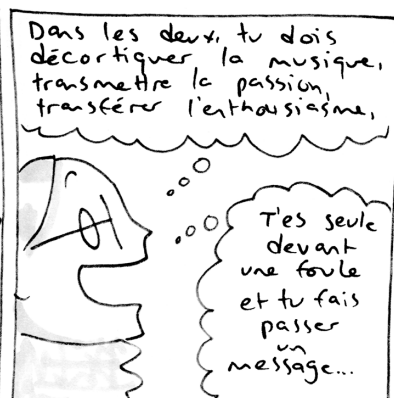 Dans les deux, tu dois
décortiquer la musique,
transmettre la passion,
transférer l'enthousiasme,
T'es seule
devant
une foule
et tu fais
passer
un
message...